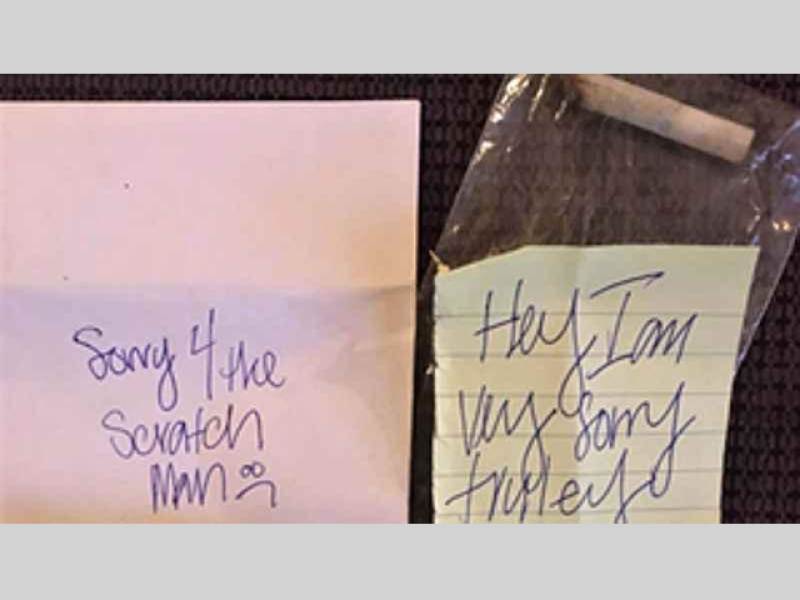 Sorry 4 the
Scratch
Man
Hey I am
Very Sorry
truley